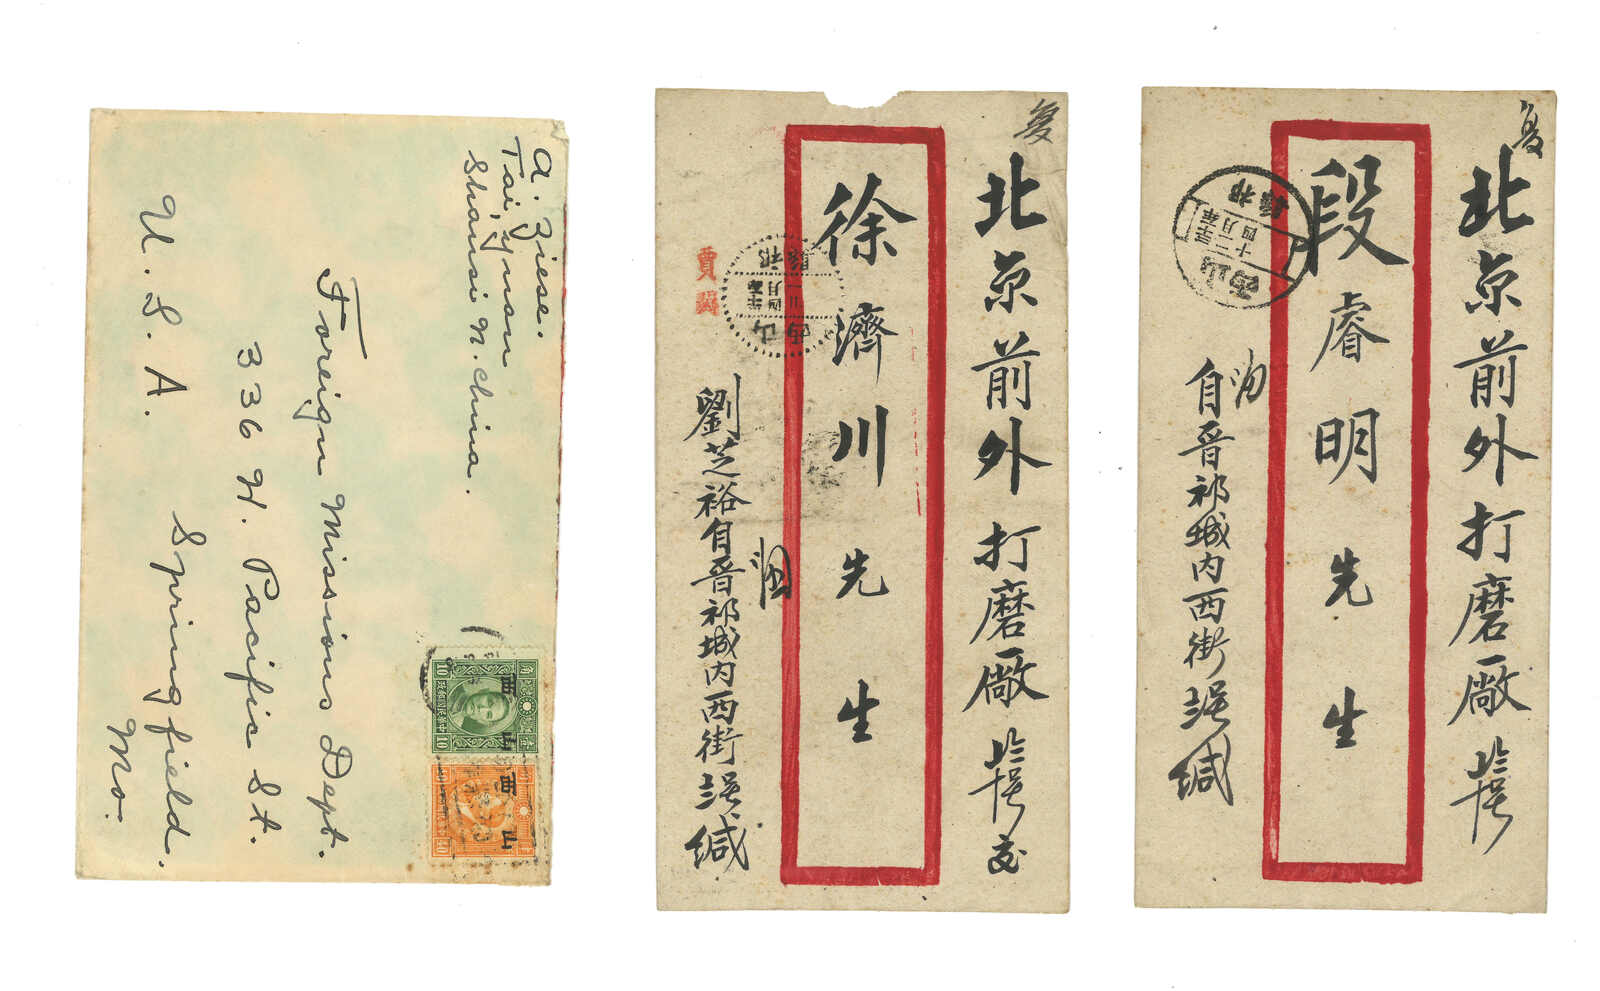 A. Ziese.
Tai Yuan
Shansi N. China.
Foreign Missions Dept.
336 W. Pacific St.
Springfield.
Mo.
U. S. A.
10
10
40
山西
山西
北京前外打磨廠
徐濟川先生
賈
山西
祁縣
劉芝裕自晉祁城内西街
緘
北京前外打磨廠
段睿明先生
山西
祁縣
自晉祁城内西街
緘